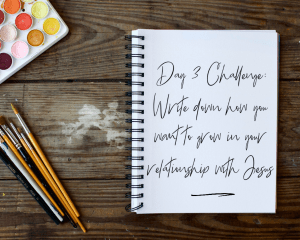 Day 3 Challenge:
Write down how you
want to grow in your
relationship with Jesus